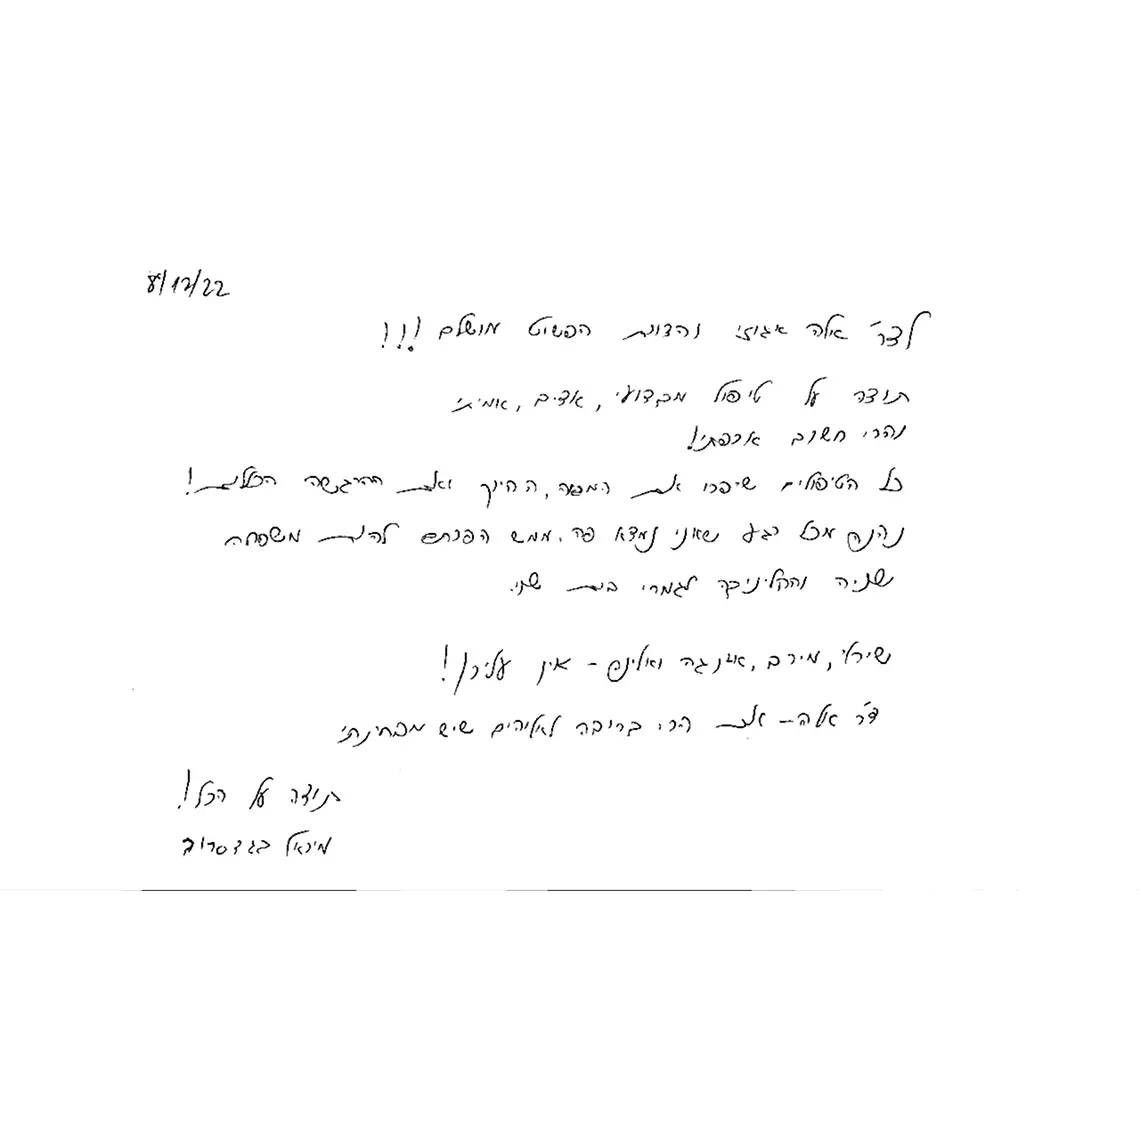 8/12/22
לדר' אלה אגוזי והצוות הפשוט מושלם!!!
תודה על טיפול מקצועי, אדיב, אמיתי
והכי חשוב אכפתי!
כל הטיפולים שיפרו את המראה, החיוך ואת ההרגשה הכללית!
נהנה מכל רגע שאני נמצא פה. ממש הפכתם להיות משפחה
שניה והקליניקה לגמרי בית שני.
שירלי, מירב, ואלינה - אין עליכן!
ד"ר אלה - את הכי קרובה לאלוהים שיש מבחינתי
תודה על הכל!
מיכאל